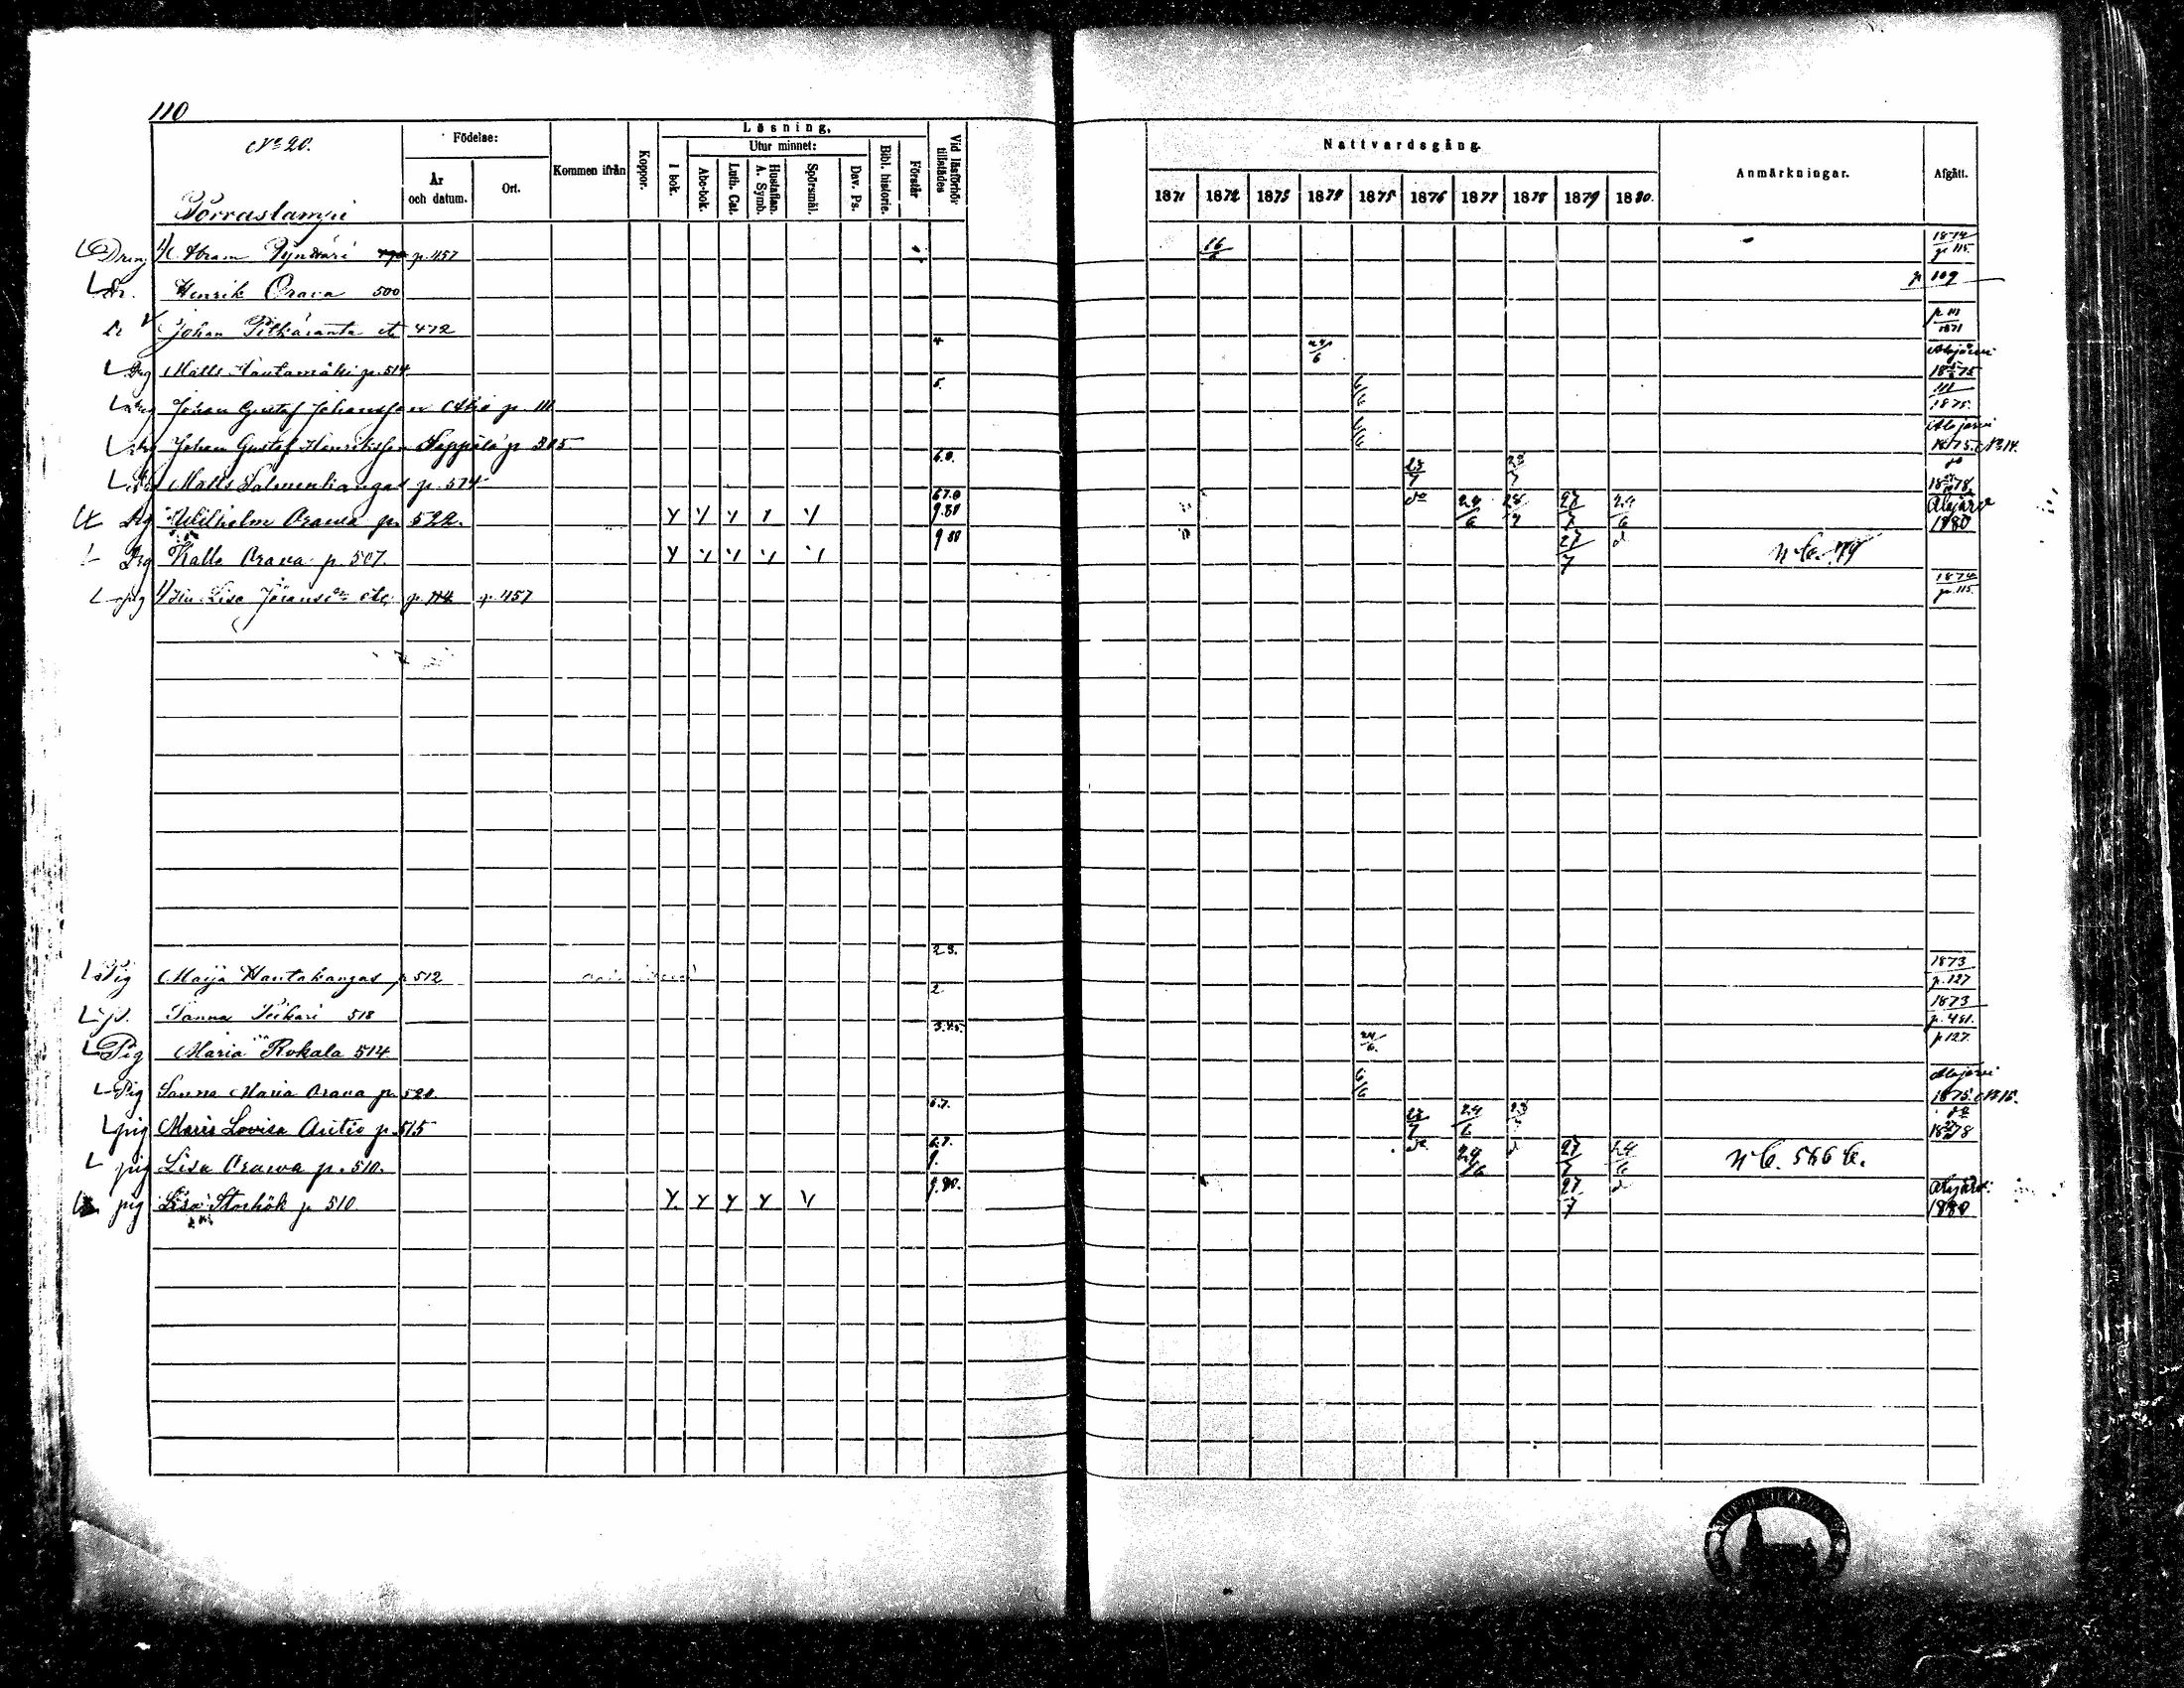 110
No 20.
Porraslampi
Födelse:
År och datum.
Ort.
Kommen ifrån
Koppor.
Läsning.
I bok.
Utur minnet:
Abc-bok.
Luth. Cat.
Hustaflan. A. Symb.
Spörsmål.
Dav. Ps.
Bibl. historie.
Förstår
Vid läsförhör tillstädes
Nattvardsgång.
1871 1872 1873 1874 1875 1876 1877 1878 1879 1880.
Anmärkningar.
Afgått.
Dreng Abram p. 457 16 1874 p. 115.
Dr. Henrik Orava 500 p 109
Dr Johan Pitkäranta etc 472 p 111 1871
Drg Matts Hautamäki p. 514 4 24/6 Alajärvi 1875
Drg Johan Gustaf Johansson Aho p. 111 5. 6/6 111 1875.
Drg Johan Gustaf Henriksson Seppälä p 305 6/6 Alajärvi 1875. No 14.
Matts Salmenkangas p. 574 6.8. 23/7 23/7 do 1878
Drg Wilhelm Orawa p. 522. Y Y Y Y Y 67.8 9.80 do 24/6 28/7 27/7 24/6 Alajärvi 1880
Drg Kalle Orava p. 507. Y Y Y Y Y 9 80 27/7 d
pig Lisa Johansdr etc. p. 114 p. 457 1874 p. 115.
Pig Maija Hautakangas p 512 2 3. 1873 p. 127
p. Sanna Piikari 518 2 1873 p. 481.
Pig Maria Rokala 514 3.4.5. 24/6. p 127.
Pig Sanna Maria Orava p. 520. 6/6 Alajärvi 1875. No 15.
pig Maria Lovisa Autio p. 515 6.7. 23/7 24/6 23 do 1878
pig Lisa Orawa p. 510. 6.7. 9. do 24/6 d 27/7 24/6 n b. 566 b.
pig Lisa Storhök p 510 Y Y Y Y Y 9.80. 27/7 d Alajärvi 1880